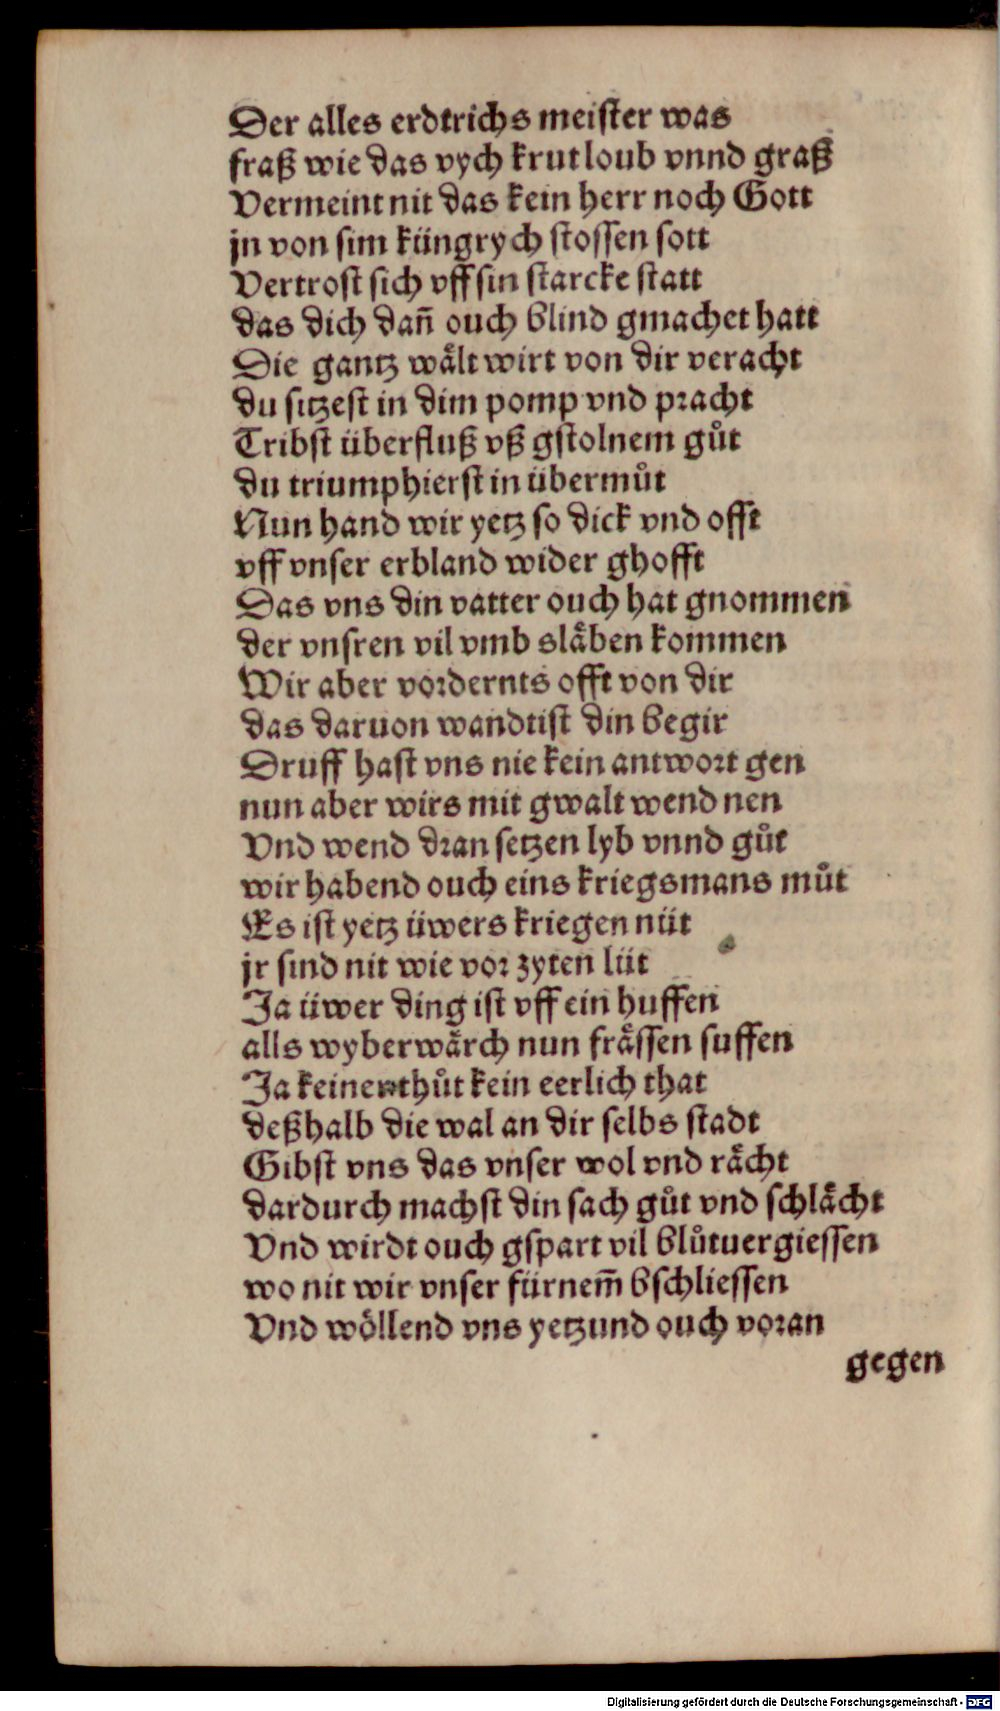 Der alles erdtrichs meister was
fraß wie das vych krut loub vnnd graß
Vermeint nit das kein herr noch Gott
jn von sim küngrych stossen sott
Vertrost sich vff sin starcke statt
das dich dañ ouch blind gmachet hatt
Die gantz waͤlt wirt von dir veracht
du sitzest in dim pomp vnd pracht
Tribst überfluß vß gstolnem guͦt
du triumphierst in übermuͦt
Nun hand wir yetz so dick vnd offt
vff vnser erbland wider ghofft
Das vns din vatter ouch hat gnommen
der vnsren vil vmb slaͤben kommen
Wir aber vordernts offt von dir
das daruon wandtist din begir
Druff hast vns nie kein antwort gen
nun aber wirs mit gwalt wend nen
Vnd wend dran setzen lyb vnnd guͦt
wir habend ouch eins kriegsmans muͦt
Es ist yetz üwers kriegen nüt
jr sind nit wie vor zyten lüt
Ja üwer ding ist vff ein huffen
alls wyberwaͤrch nun fraͤssen suffen
Ja keiner thuͦt kein eerlich that
deßhalb die wal an dir selbs stadt
Gibst vns das vnser wol vnd raͤcht
dardurch machst din sach guͦt vnd schlaͤcht
Vnd wirdt ouch gspart vil bluͦtuergiessen
wo nit wir vnser fürnem̃ bschliessen
Vnd woͤllend vns yetzund ouch voran
gegen
Digitalisierung gefördert durch die Deutsche Forschungsgemeinschaft - DFG